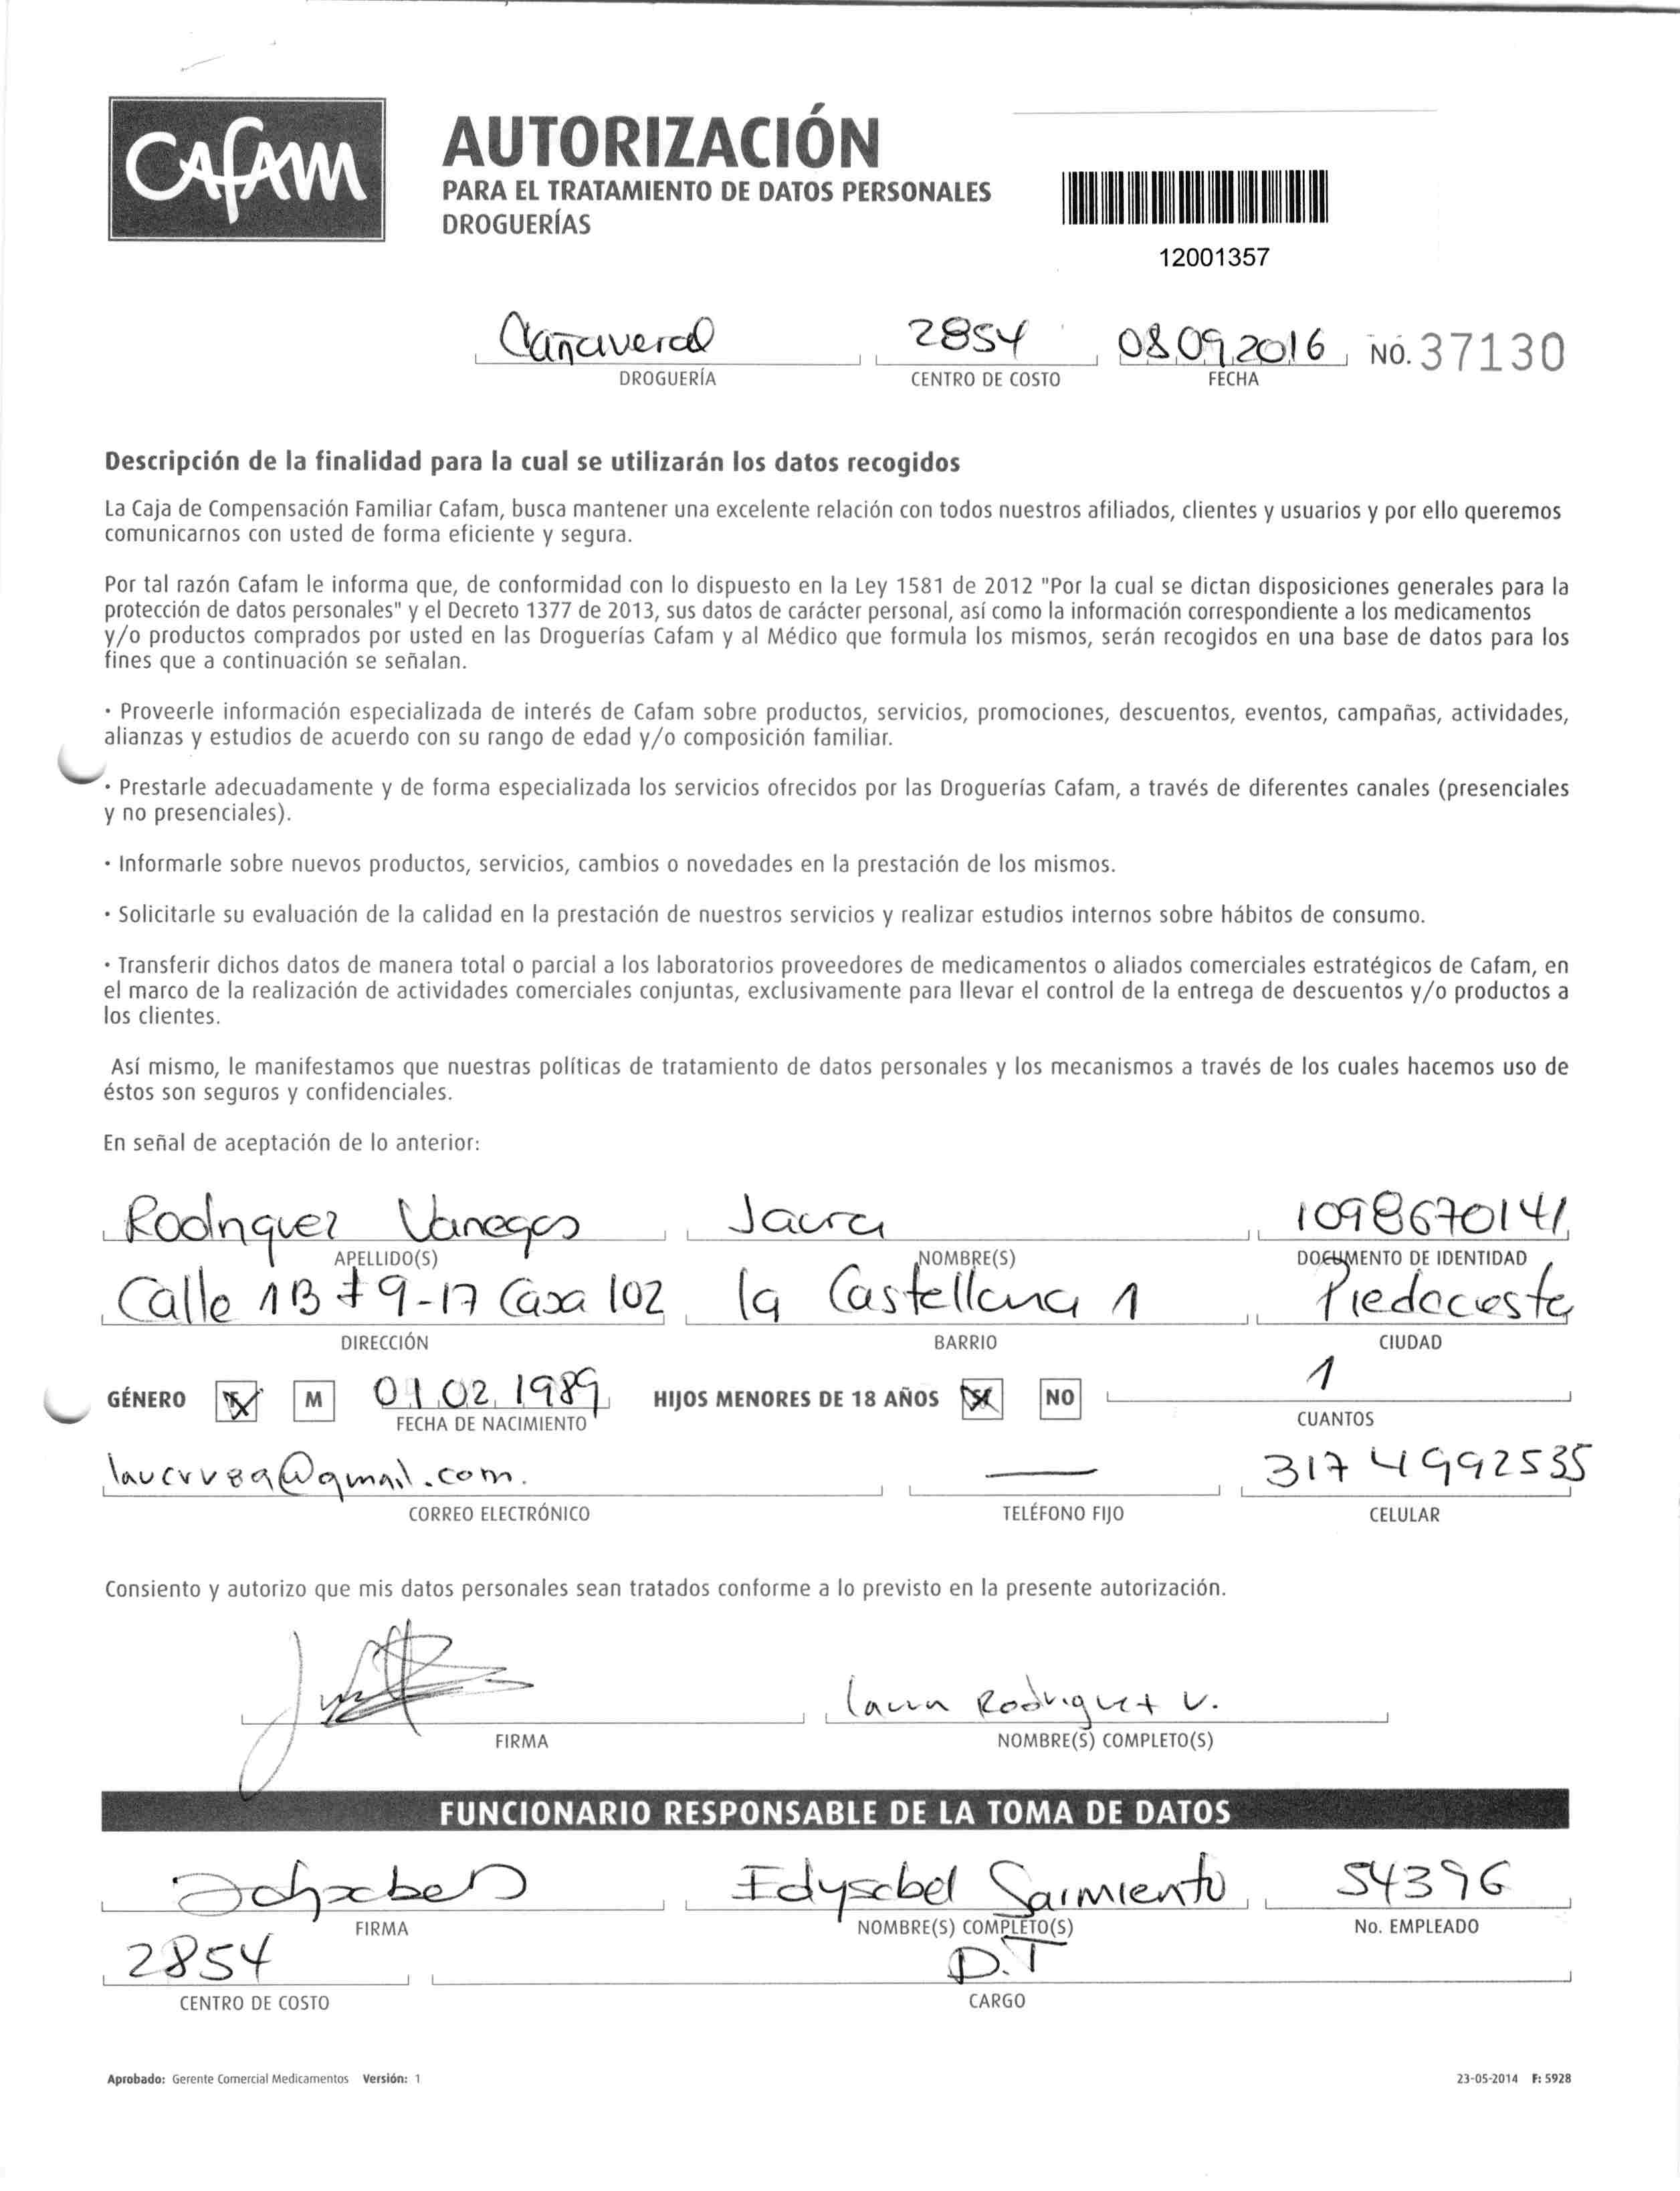 CAFAM
AUTORIZACIÓN
PARA EL TRATAMIENTO DE DATOS PERSONALES
DROGUERÍAS
12001357
Cañaveral 2854 08.09.2016 NO. 37130
DROGUERÍA CENTRO DE COSTO FECHA
Descripción de la finalidad para la cual se utilizarán los datos recogidos
La Caja de Compensación Familiar Cafam, busca mantener una excelente relación con todos nuestros afiliados, clientes y usuarios y por ello queremos
comunicarnos con usted de forma eficiente y segura.
Por tal razón Cafam le informa que, de conformidad con lo dispuesto en la Ley 1581 de 2012 "Por la cual se dictan disposiciones generales para la
protección de datos personales" y el Decreto 1377 de 2013, sus datos de carácter personal, así como la información correspondiente a los medicamentos
y/o productos comprados por usted en las Droguerías Cafam y al Médico que formula los mismos, serán recogidos en una base de datos para los
fines que a continuación se señalan.
· Proveerle información especializada de interés de Cafam sobre productos, servicios, promociones, descuentos, eventos, campañas, actividades,
alianzas y estudios de acuerdo con su rango de edad y/o composición familiar.
· Prestarle adecuadamente y de forma especializada los servicios ofrecidos por las Droguerías Cafam, a través de diferentes canales (presenciales
y no presenciales).
· Informarle sobre nuevos productos, servicios, cambios o novedades en la prestación de los mismos.
· Solicitarle su evaluación de la calidad en la prestación de nuestros servicios y realizar estudios internos sobre hábitos de consumo.
· Transferir dichos datos de manera total o parcial a los laboratorios proveedores de medicamentos o aliados comerciales estratégicos de Cafam, en
el marco de la realización de actividades comerciales conjuntas, exclusivamente para llevar el control de la entrega de descuentos y/o productos a
los clientes.
Así mismo, le manifestamos que nuestras políticas de tratamiento de datos personales y los mecanismos a través de los cuales hacemos uso de
éstos son seguros y confidenciales.
En señal de aceptación de lo anterior:
Rodriguez Vanegas Laura 1098670141
APELLIDO(S) NOMBRE(S) DOCUMENTO DE IDENTIDAD
Calle 1B # 9-17 Casa 102 la Castellana 1 Piedecuesta
DIRECCIÓN BARRIO CIUDAD
GÉNERO F M 01.02.1989 HIJOS MENORES DE 18 AÑOS SI NO 1
FECHA DE NACIMIENTO CUANTOS
@gmail.com. — 317 4992535
CORREO ELECTRÓNICO TELÉFONO FIJO CELULAR
Consiento y autorizo que mis datos personales sean tratados conforme a lo previsto en la presente autorización.
Laura Rodriguez V.
FIRMA NOMBRE(S) COMPLETO(S)
FUNCIONARIO RESPONSABLE DE LA TOMA DE DATOS
Idysabel Sarmiento 54396
FIRMA NOMBRE(S) COMPLETO(S) No. EMPLEADO
2854 D.T
CENTRO DE COSTO CARGO
Aprobado: Gerente Comercial Medicamentos Versión: 1 23-05-2014 F: 5928